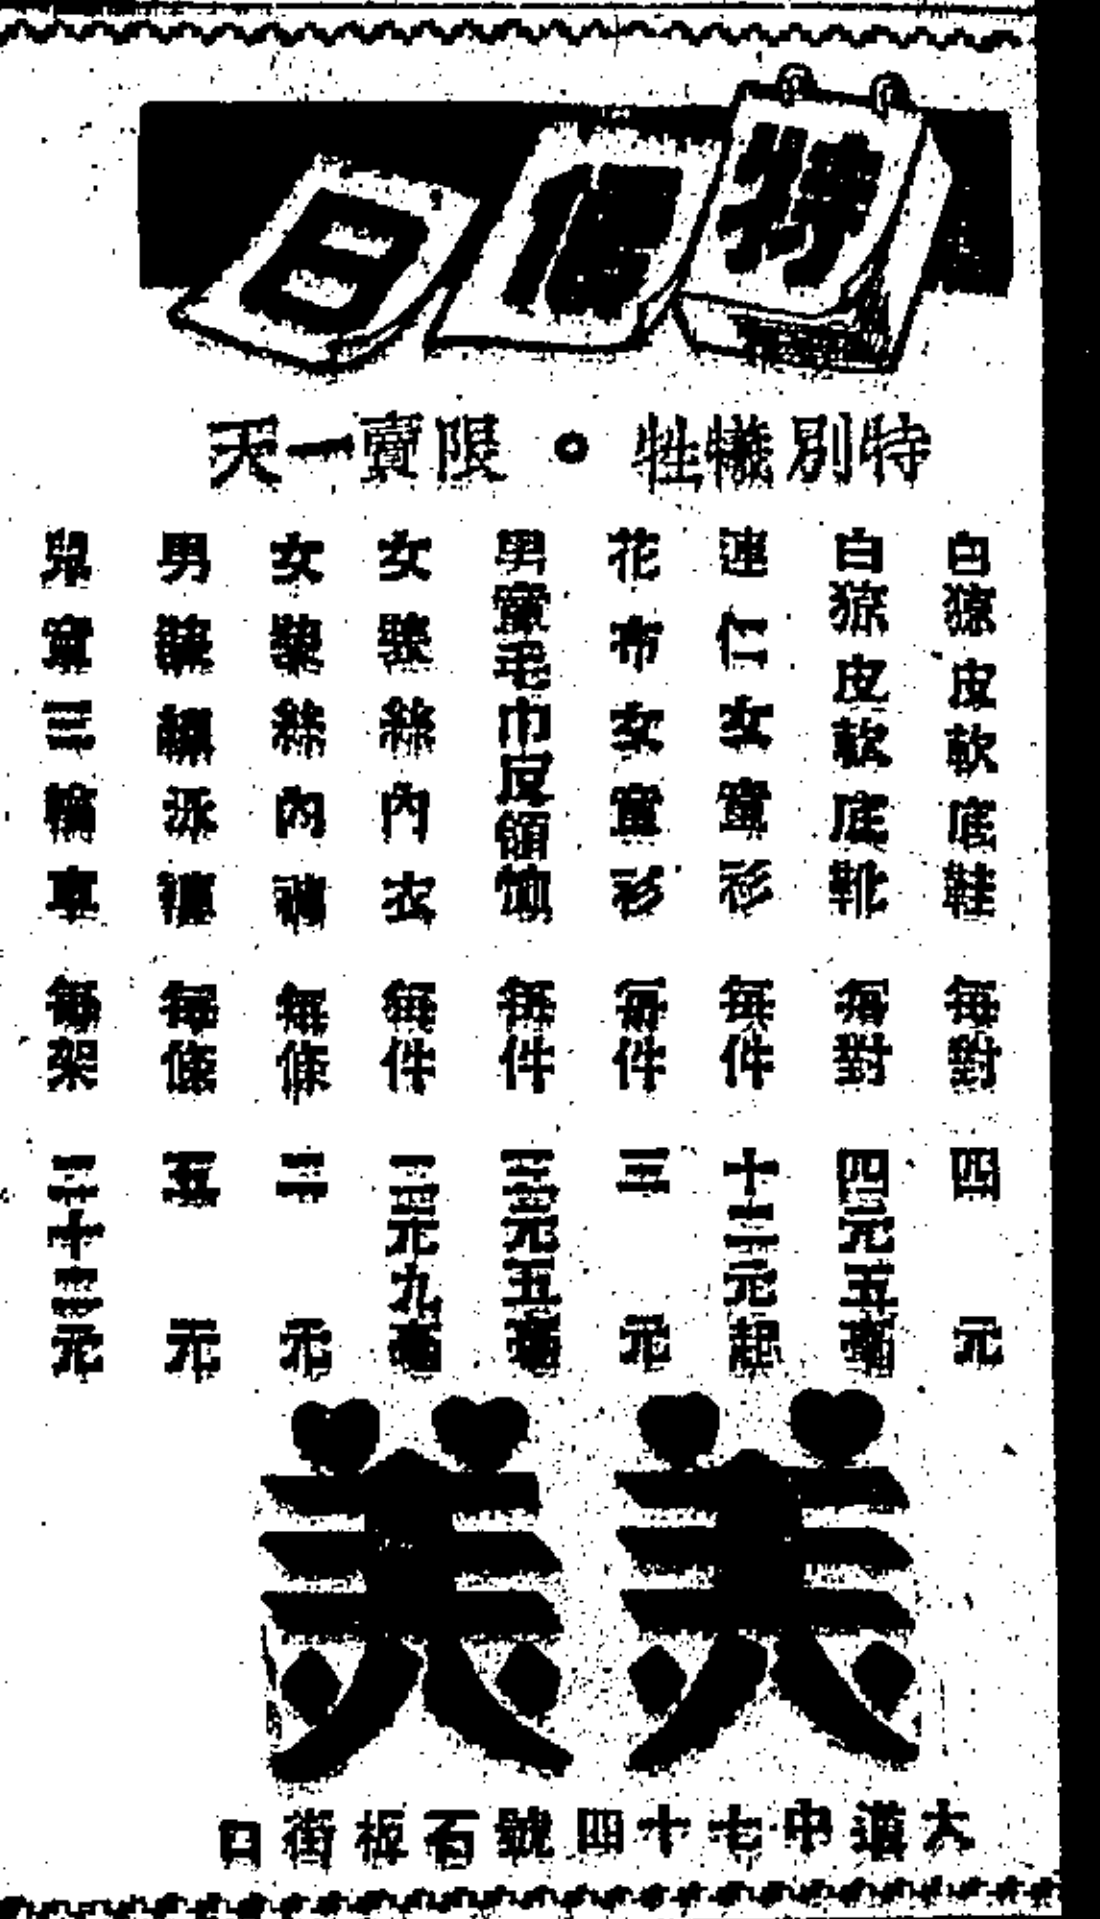 特價日
特別犧牲。限賣一天
白猄皮軟底鞋 每對 四元
白猄皮軟底靴 每對 四元五毫
連仁女童衫 每件 十二元起
花布女童衫 每件 三元
男童毛巾反領恤 每件 三元五毫
女裝絲內衣 每件 二元九毫
女裝絲內褲 每條 二元
男裝 泳褲 每條 五元
兒童三輪車 每架 二十二元
美美
大道中七十四號石板街口